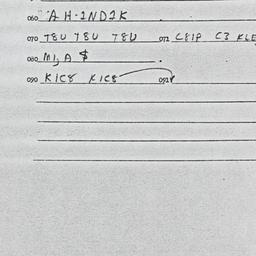 060 A H-INDIK
070 T8U Y8U T8U 072 C81P C3 KLE
080 M1, A $
090 KIC8 KIC8 092